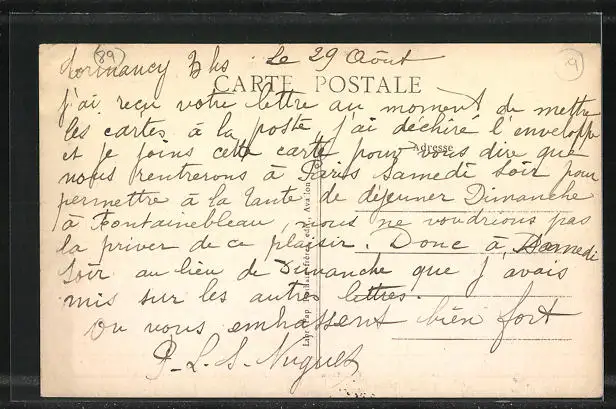 (89)
Lormancy 3 hs Le 29 Août
9
CARTE POSTALE
j'ai reçu votre lettre au moment de mettre
les cartes à la poste j'ai déchiré l'enveloppe
Adresse
et je joins cette carte pour vous dire que
nous rentrerons à Paris Samedi Soir pour
permettre à la tante de déjeuner Dimanche
à Fontainebleau, nous ne voudrions pas
la priver de ce plaisir. Donc à Samedi
Soir au lieu de Dimanche que j'avais
mis sur les autres lettres.
On vous embrassent bien fort
P-L-S-Nuguet
frères, édit., Avallon